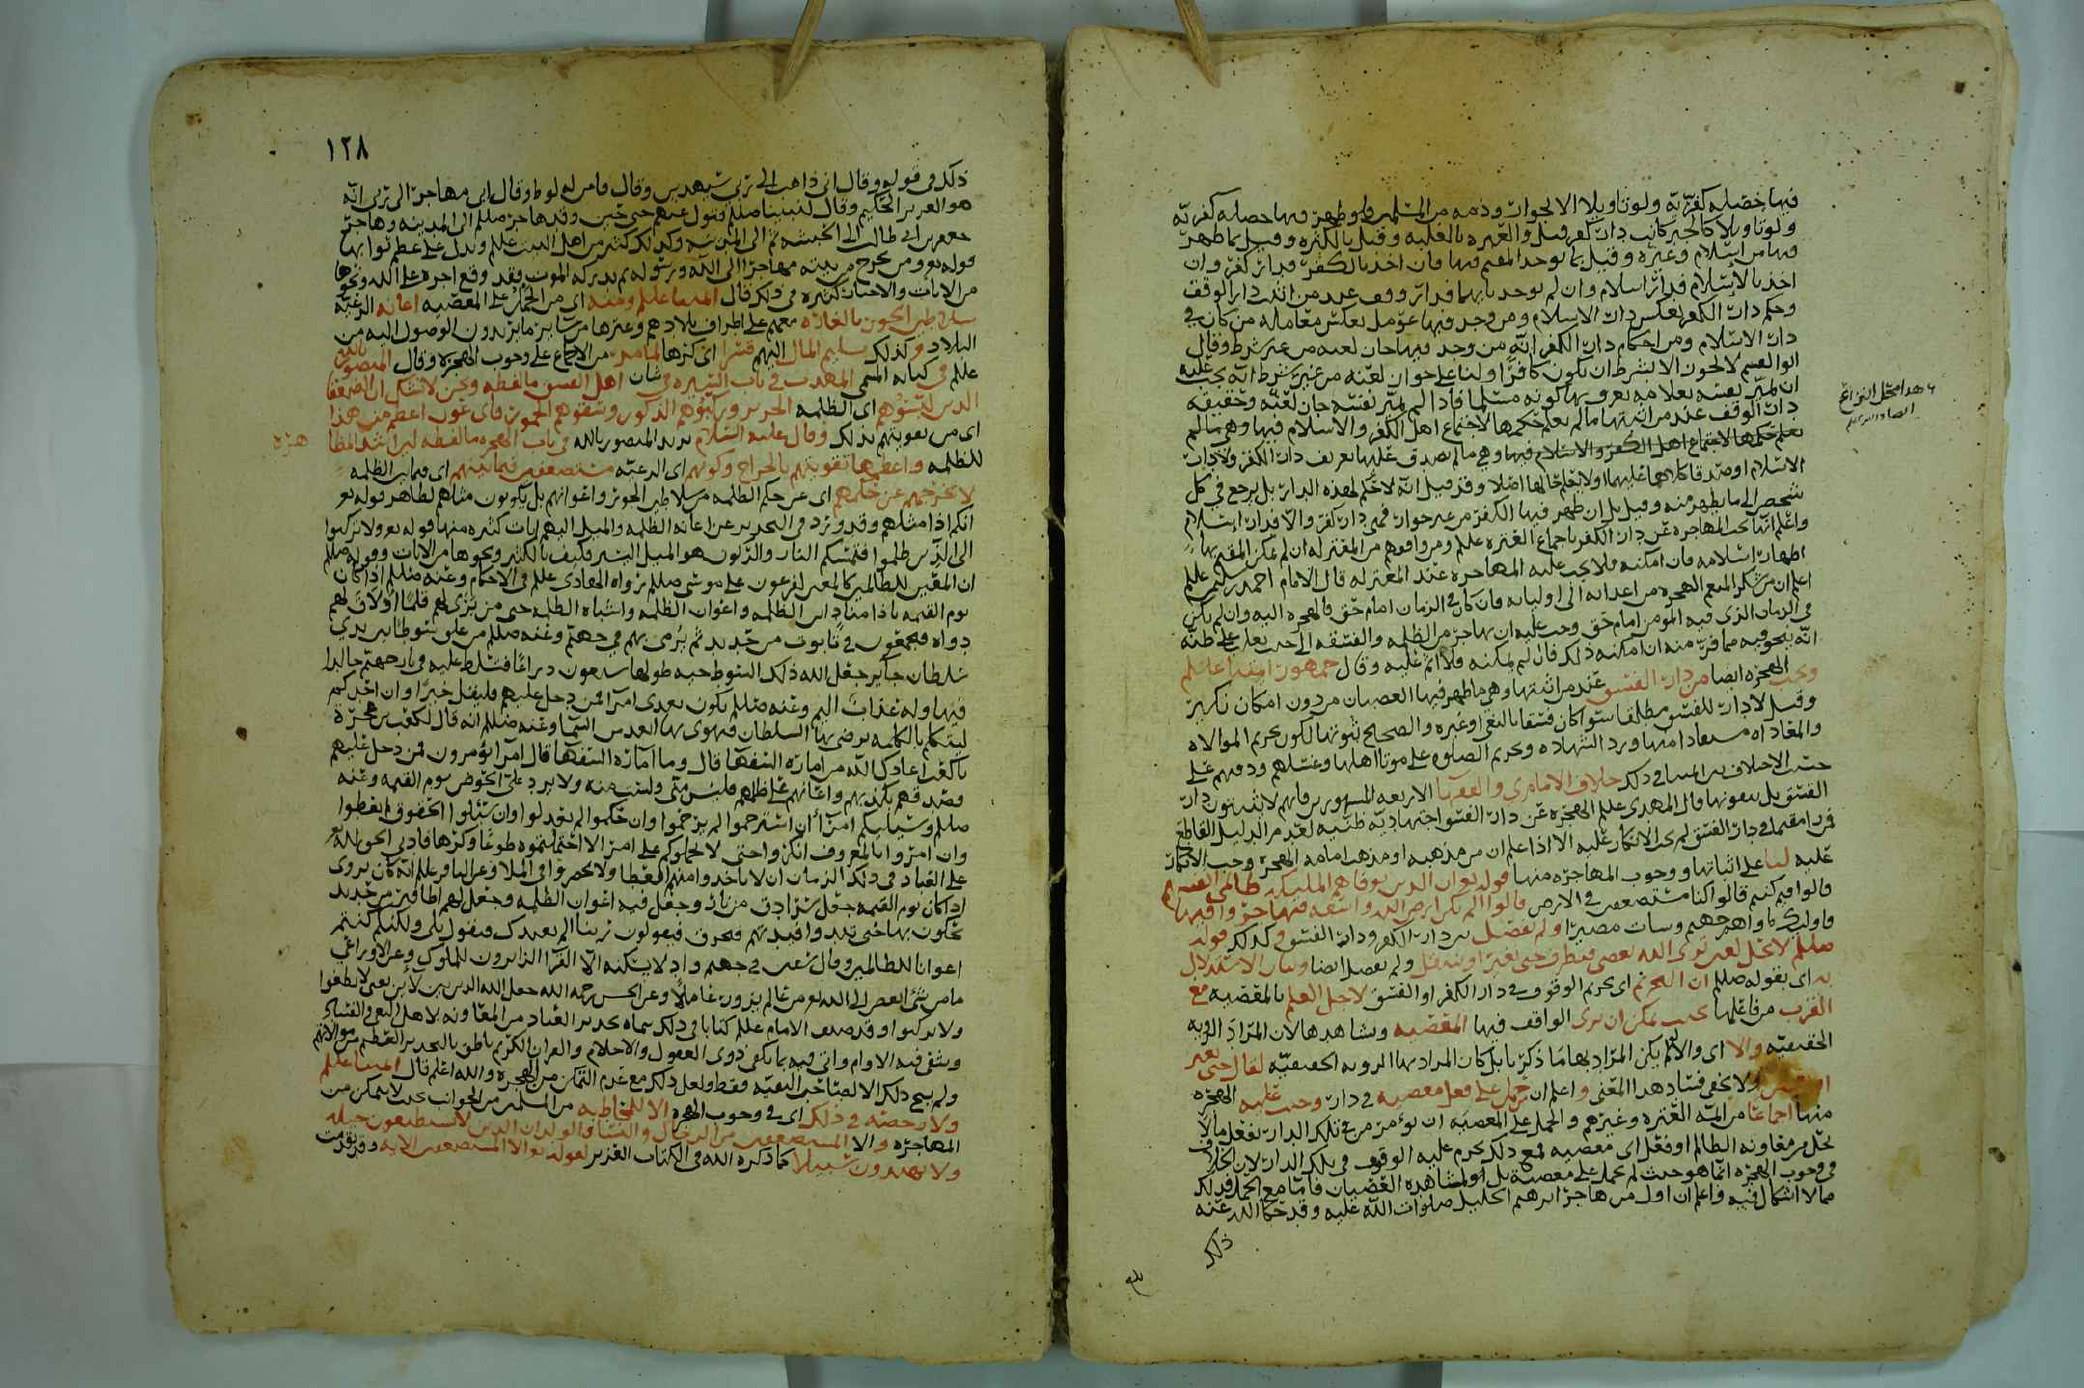 فيها خصلة كفرية ولو تاويلا الا لجوار وذمة من المسلمين او ظهر فيها خصلة كفرية
ولو تاويلا كالجبر كانت دار كفر قيل والعبرة بالغلبة وقيل بالكثرة وقيل بما ظهر
فيها من اسلام وغيره وقيل بما يوخذ المقيم فيها فان اخذ بالكفر فدار كفر وان
اخذ بالاسلام فدار اسلام وان لم يوخذ بايهما فدار وقف عند من اثبت دار الوقف
وحكم دار الكفر بعكس دار الاسلام ومن وجد فيها عومل بعكس معاملة من كان في
دار الاسلام ومن احكام دار الكفر انه من وجد فيها جاز لعنه من غير شرط وقال
ابو القسم لا يجوز الا بشرط ان يكون كافرا ولنا على جواز لعنه من غير شرط انه يجب عليه
ان يميز نفسه بعلامة يعرف بها كونه مسلما فاذا لم يميز نفسه جاز لعنه وحقيقة
دار الوقف عند من اثبتها ما لم يعلم حكمها لاجتماع اهل الكفر والاسلام فيها وهي ما لم
يعلم حكمها لاجتماع اهل الكفر والاسلام فيها وهي ما لم يصدق عليها تعريف دار الكفر ولا دار
الاسلام او صدقا كلاهما عليها او لا يعلم حالها اصلا وقد قيل انه لا حكم لهذه الدار بل يرجع في كل
شخص الى ما يظهر منه وقيل بل ان ظهر فيها الكفر من غير جوار فهي دار كفر والا فدار اسلام
واعلم انها تجب المهاجرة عن دار الكفر باجماع العترة علم ومن وافقهم من المعتزلة ان لم يمكن المقيم بها
اظهار اسلامه فان امكنه فلا يجب عليه المهاجرة عند المعتزلة قال الامام احمد بن سليمن علم
اعلم ان من شكر المنعم الهجرة من اعدائه الى اوليائه فان كان في الزمان امام حق فالهجرة اليه وان لم يكن
في الزمان الذي فيه المومن امام حق وجب عليه ان يهاجر من الظلمة والفسقة الى حيث يغلب على ظنه
انه ينجو فيه مما فر منه ان امكنه ذلك فان لم يمكنه فلا اثم عليه وقال جمهور ائمتنا علم
وتجب الهجرة ايضا من دار الفسق عند من اثبتها وهي ما ظهر فيها العصيان من دون امكان نكير
وقيل لا دار للفسق مطلقا سوا كان فسقا بالبغي او غيره والصحيح ثبوتها لكون تحريم الموالاة
والمعاداة مستفادا منها ورد الشهادة وتحريم الصلوة على موتا اهلها وغسلهم ودفنهم على
حسب الاختلاف بين ائمتنا في ذلك خلاف الامام ي والفقها الاربعة المشهورين فانهم لا يثبتون دار
الفسق بل ينفونها قال المهدي علم الهجرة عن دار الفسق اجتهادية ظنية لعدم الدليل القاطع
فمن اقام في دار الفسق لم يجز الانكار عليه الا اذا علم ان من مذهبه او مذهب امامه الهجرة وجب الانكار
عليه لنا على اثباتها ووجوب المهاجرة منها قوله تع ان الذين توفاهم الملئكة ظالمي انفسهم
قالوا فيم كنتم قالوا كنا مستضعفين في الارض قالوا الم تكن ارض الله واسعة فتهاجروا فيها
فاولئك ماواهم جهنم وسات مصيرا ولم تفصل بين دار الكفر ودار الفسق وكذلك قوله
صللم لا يحل لعين ترى الله يعصى فتطرف حتى تغير او تنتقل ولم يفصل ايضا وبيان الاستدلال
به اي بقوله صللم ان التحريم اي تحريم الوقوف في دار الكفر او الفسق لاجل العلم بالمعصية مع
القرب من فاعلها بحيث يمكن ان يرى الواقف فيها المعصية ويشاهدها لان المراد الروية
الحقيقية والا اي والا لم يكن المراد بها ما ذكرنا بل كان المراد بها الروية الحقيقية لقال حتى تغير
ولا يخفى فساد هذا المعنى واعلم ان من حمل على فعل معصية في دار وجبت عليه الهجرة
منها اجماعا من ائمة العترة وغيرهم والحمل على المعصية ان يؤمر من في تلك الدار بفعل ما لا
يحل من معاونة الظالم او فعل اي معصية فمع ذلك يحرم عليه الوقوف في تلك الدار لان الخلاف
في وجوب الهجرة انما هو حيث لم يحمل على معصية بل لمشاهدة العصيان فاما مع الحمل فذلك
مما لا اشكال فيه واعلم ان اول من هاجر ابرهيم الخليل صلوات الله عليه وقد حكا الله عنه
ذلك
هذا محل الفراغ
١٢٨
ذلك في قوله وقال اني ذاهب الى ربي سيهدين وقال فامن له لوط وقال اني مهاجر الى ربي انه
هو العزيز الحكيم وقال لنبينا صللم فتول عنهم حتى حين وقد هاجر صللم الى المدينة وهاجر
جعفر بن ابي طالب الى الحبشة ثم الى المدينة وكذلك كثير من اهل البيت علم ويدل على عظم ثوابها
قوله تع ومن يخرج من بيته مهاجرا الى الله ورسوله ثم يدركه الموت فقد وقع اجره على الله ونحوها
من الايات والاخبار كثيرة في ذلك قال ائمتنا علم ومنه اي من الحمل على المعصية اعانة الرعية
سلاطين الجور بالغارة معهم على اطراف بلادهم وغيرها من ساير ما يريدون الوصول اليه من
البلاد وكذلك تسليم المال اليهم قسرا اي كرها لما مر من الاجماع على وجوب الهجرة وقال المنصور بالله
علم في كتابه المسمى المهذب في باب السيرة في شان اهل الفسق ما لفظه ونحن لا نشكل ان الضعفا
الذين لبسوهم اي الظلمة الحرير وركبوهم الذكور وسقوهم الخمور فاي عون اعظم من هذا
اي من تقويتهم بذلك وقال عليه السلام يريد المنصور بالله في باب الهجرة ما لفظه لمن اشد المظا هرة
للظلمة واعظمها تقويتهم بالخراج وكونهم اي الرعية مستضعفين فيما بينهم اي فيما بين الظلمة
لا يخرجهم عن حكمهم اي عن حكم الظلمة من سلاطين الجور واعوانهم بل يكونون مثلهم لظاهر قوله تع
انكم اذا مثلهم وقد ورد في التحذير عن اعانة الظلمة والميل اليهم ايات كثيرة منها قوله تع ولا تركنوا
الى الذين ظلموا فتمسكم النار والركون هو الميل اليسير فكيف بالكثير ونحوها من الايات وقوله صللم
ان المعين للظالمين كالمعين لفرعون على موسى صللم رواه الهادي علم في الاحكام وعنه صللم اذا كان
يوم القيمة نادا مناد اين الظلمة واعوان الظلمة واشباه الظلمة حتى من برى لهم قلما او لاق لهم
دواة فيجمعون في تابوت من حديد ثم يرمى بهم في جهنم وعنه صللم من علق سوطا بين يدي
سلطان جاير جعل الله ذلك السوط حية طولها سبعون ذراعا فتسلط عليه في نار جهنم خالدا
فيها وله عذاب اليم وعنه صللم يكون بعدي امرا فمن دخل عليهم فليقل خيرا وان احدكم
ليتكلم بالكلمة يرضي بها السلطان فيهوى بها ابعد من السما وعنه صللم انه قال لكعب بن عجرة
يا كعب اعاذك الله من امارة السفها قال وما امارة السفها قال امرا يؤمرون فمن دخل عليهم
وصدقهم بكذبهم واعانهم على ظلمهم فليس مني ولست منه ولا يرد على الحوض يوم القيمة وعنه
صللم وسيليكم امرا ان استرحموا لم يرحموا وان حكموا لم يعدلوا وان سئلوا الحقوق لم يعطوا
وان امروا بالمعروف انكروا حتى لا يحملوكم على امر الا احتملتموه طوعا وكرها فادنى الحق لله تع
على العباد في ذلك الزمان ان لا ياخذوا منهم العطا ولا يحضروا في الملا وعن الباقر علم انه كان يروي
اذا كان يوم القيمة جعل سرادق من نار وجعل فيه اعوان الظلمة وجعل لهم اظافير من حديد
يحكون بها حتى تبدوا افئدتهم فتحرق فيقولون ربنا الم نعبدك فيقول بلى ولكنكم كنتم
اعوانا للظالمين وقال في جهنم واد لا يسكنه الا القرا الزايرون للملوك وعن الاوزاعي
ما من شئ ابغض الى الله تع من عالم يزور عاملا وعن الحسن رحمه الله جعل الله الدين بين لائين يعني لا تطغوا
ولا تركنوا وقد صنف الامام علم كتابا في ذلك سماه تحذير العباد من المعاونة لاهل البغي والفساد
وشفى فيه الاوام واتى فيه بما يكفي ذوي العقول والاحلام والقران الكريم ناطق بالتحذير العظيم من موالاتهم
ولم يبح ذلك الا لصاحب التقية فقط ولعل ذلك مع عدم التمكن من الهجرة والله اعلم قال ائمتنا علم
ولا رخصة في ذلك اي في وجوب الهجرة الا للمخاطبة من المسلمين من الجوانب بحيث لا يتمكن من
المهاجرة والا المستضعفين من الرجال والنسا والولدان الذين لا يستطيعون حيلة
ولا يهتدون سبيلا كما ذكره الله في الكتاب العزيز لقوله تع الا المستضعفين الاية وقد تقدمت